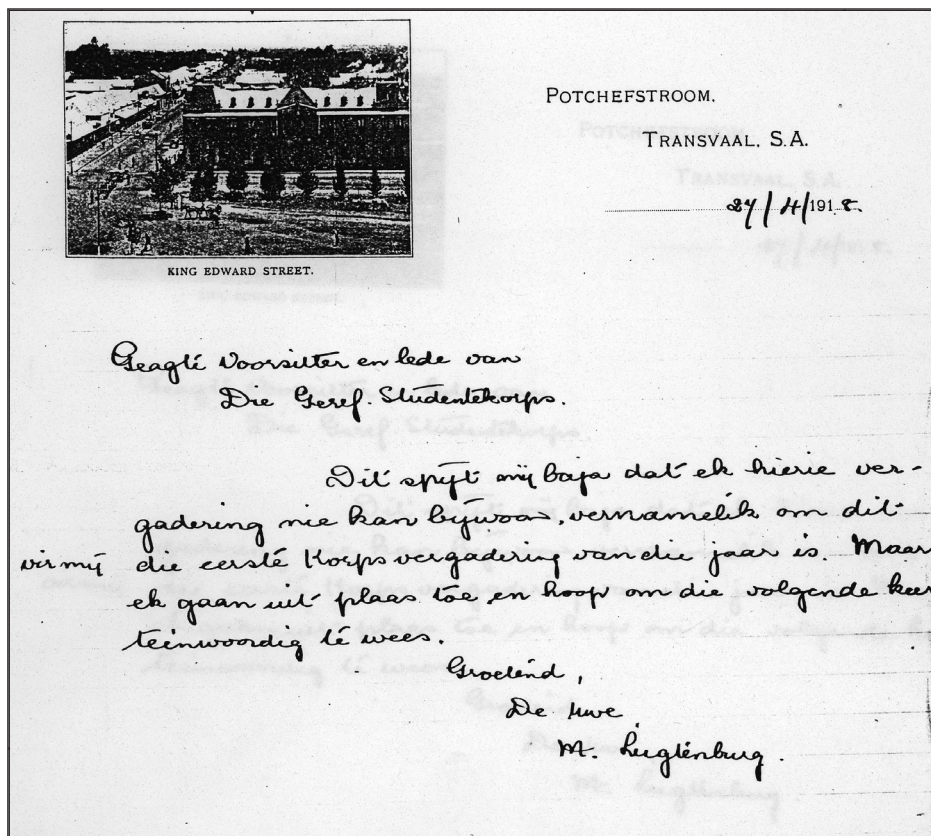 POTCHEFSTROOM.
TRANSVAAL, S.A.
27/4/1918.
KING EDWARD STREET.
Geagte Voorsitter en lede van
Die Geref. Studentekorps.
Dit spijt mij baja dat ek hierie ver-
gadering nie kan bijwoon, vernamelik om dit
vir mij die eerste Korpsvergadering van die jaar is. Maar
ek gaan uit plaas toe en hoop om die volgende keer
teinwoordig te wees.
Groetend,
De Uwe
M. Lugtenburg.